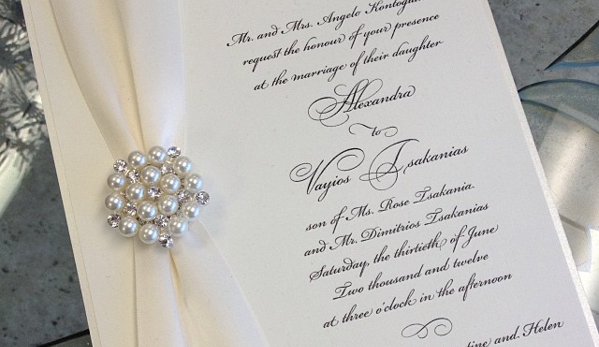 Mr. and Mrs. Angelo
request the honour of your presence
at the marriage of their daughter
Alexandra
to
Vayios Tsakanias
son of Ms. Rose Tsakania
and Mr. Dimitrios Tsakanias
Saturday, the thirtieth of June
Two thousand and twelve
at three o'clock in the afternoon
and Helen